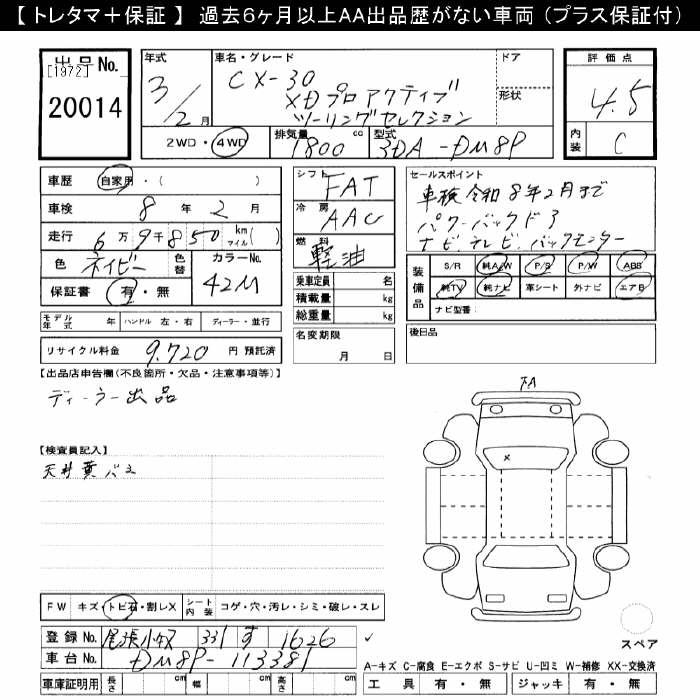 【 トレタマ＋保証 】 過去6ヶ月以上AA出品歴がない車両（プラス保証付）
出品 No.
[1972]
20014
年式
3/2月
車名・グレード
CX-30
XDプロアクティブ
ツーリングセレクション
ドア
形状
評価点
4.5
内装
C
2WD・4WD
排気量
1800 cc
型式
3DA-DM8P
車歴 自家用・( )
車検 8年 2月
走行 6万9千850 km マイル( )
色 ネイビー
色替
カラーNo.
42M
保証書 有・無
モデル年式 年
ハンドル 左・右
ディーラー・並行
リサイクル料金 9,720 円 預託済
シフト FAT
冷房 AAC
燃料 軽油
乗車定員 名
積載量 kg
総重量 kg
名変期限
月 日
セールスポイント
車検令和8年2月まで
パワーバックドア
ナビ.テレビ.バックモニター
装備品
S/R 純A/W P/S P/W ABS
純TV 純ナビ 革シート 外ナビ エアB
ナビ型番：
後日品
【出品店申告欄(不良箇所・欠品・注意事項等)】
ディーラー出品
【検査員記入】
FW キズ・トビ石・割レX
シート内装 コゲ・穴・汚レ・シミ・破レ・スレ
登録 No. 尾張小牧 331 す 1626
車台 No. DM8P-113381
車庫証明用 長さ cm 幅 cm 高さ cm
スペア
A-キズ C-腐食 E-エクボ S-サビ U-凹ミ W-補修 XX-交換済
工具 有・無 ジャッキ 有・無